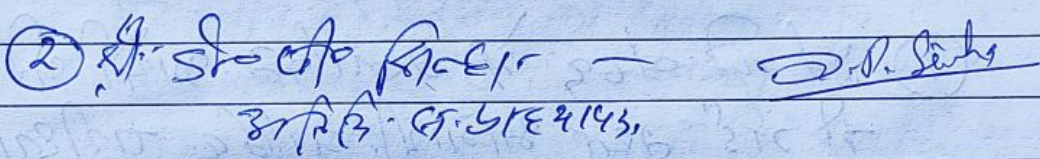 ② श्री डी० पी० सिन्हा — D.P. Sinha
अतिथि स. प्राध्यापक